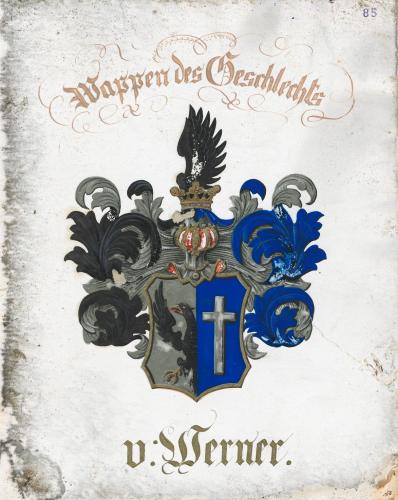 85
Wappen des Geschlechts
v: Werner.